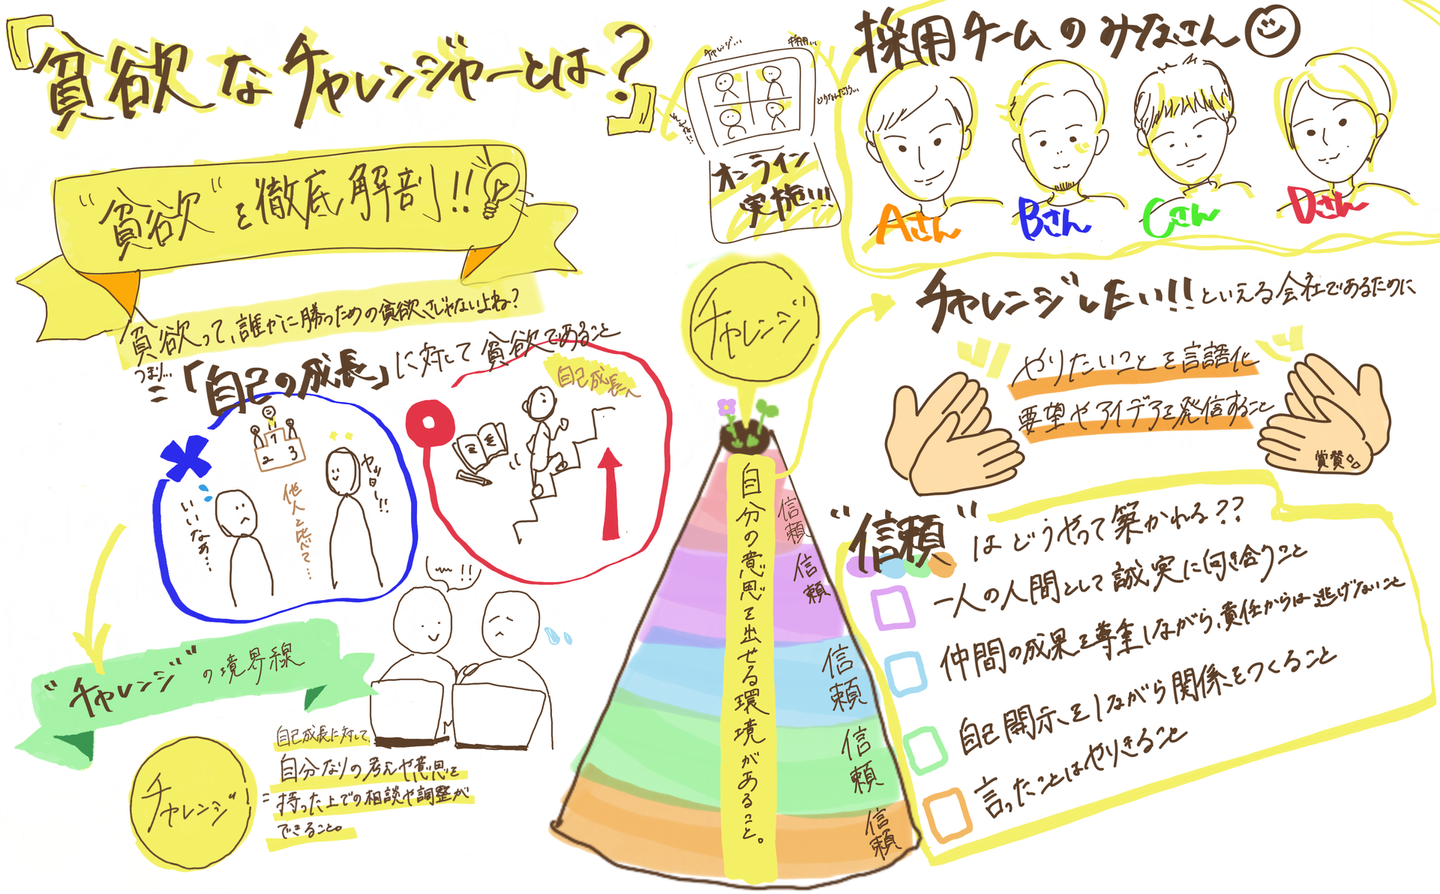 『貪欲なチャレンジャーとは?』
"貪欲"を徹底解剖!!
貪欲って、誰かに勝つための貪欲さじゃないよね?
つまり…
=「自己の成長」に対して貪欲であること
1
2 3
いいなぁ…
他人と比べて…
ヤッター!!
自己成長
!!
"チャレンジ"の境界線
チャレンジ
=
自己成長に対して、
自分なりの考えや意思を
持った上での相談や調整が
できること。
チャレンジ…
採用…
オンライン
実施!!!
採用チームのみなさん
Aさん
Bさん
Cさん
Dさん
チャレンジ
自分の意思を出せる環境があること。
信頼
信頼
信頼
信頼
信頼
チャレンジしたい!!といえる会社であるために
やりたいことを言語化
要望やアイデアを発信すること
賞賛
"信頼"はどうやって築かれる??
一人の人間として誠実に向き合うこと
仲間の成果を尊重しながら、責任からは逃げないこと
自己開示をしながら関係をつくること
言ったことはやりきること